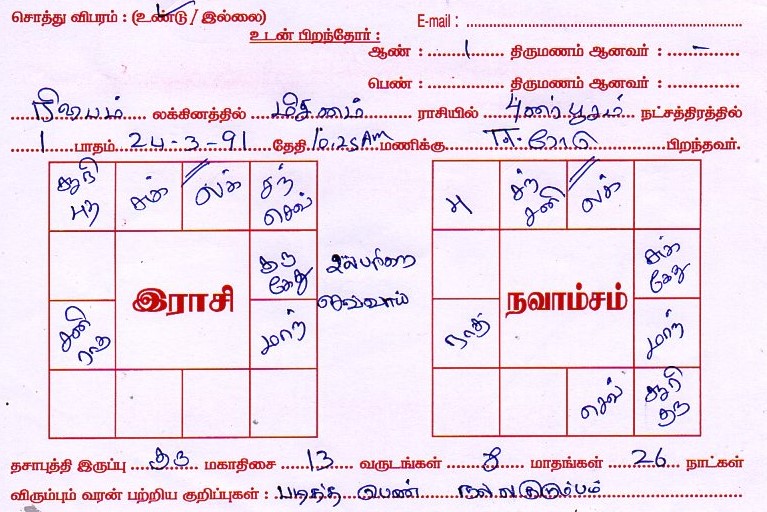 சொத்து விபரம் : (உண்டு / இல்லை) E-mail :
உடன் பிறந்தோர் :
ஆண் : 1 திருமணம் ஆனவர் : -
பெண் : திருமணம் ஆனவர் :
ரிஷபம் லக்கினத்தில் மிதுனம் ராசியில் புனர்பூசம் நட்சத்திரத்தில்
1 பாதம் 24-3-91 தேதி 10.25 AM மணிக்கு பிறந்தவர்.
சுக் லக் சந் சந் லக்
புத செவ் சனி
குரு கேது பரிகார சுக் கேது
இராசி செவ்வாய் நவாம்சம்
சனி ராகு மாந் ராகு மாந்
செவ் சூரி குரு
தசாபுத்தி இருப்பு குரு மகாதிசை 13 வருடங்கள் 8 மாதங்கள் 26 நாட்கள்
விரும்பும் வரன் பற்றிய குறிப்புகள் : படித்த பெண் நல்ல குடும்பம்